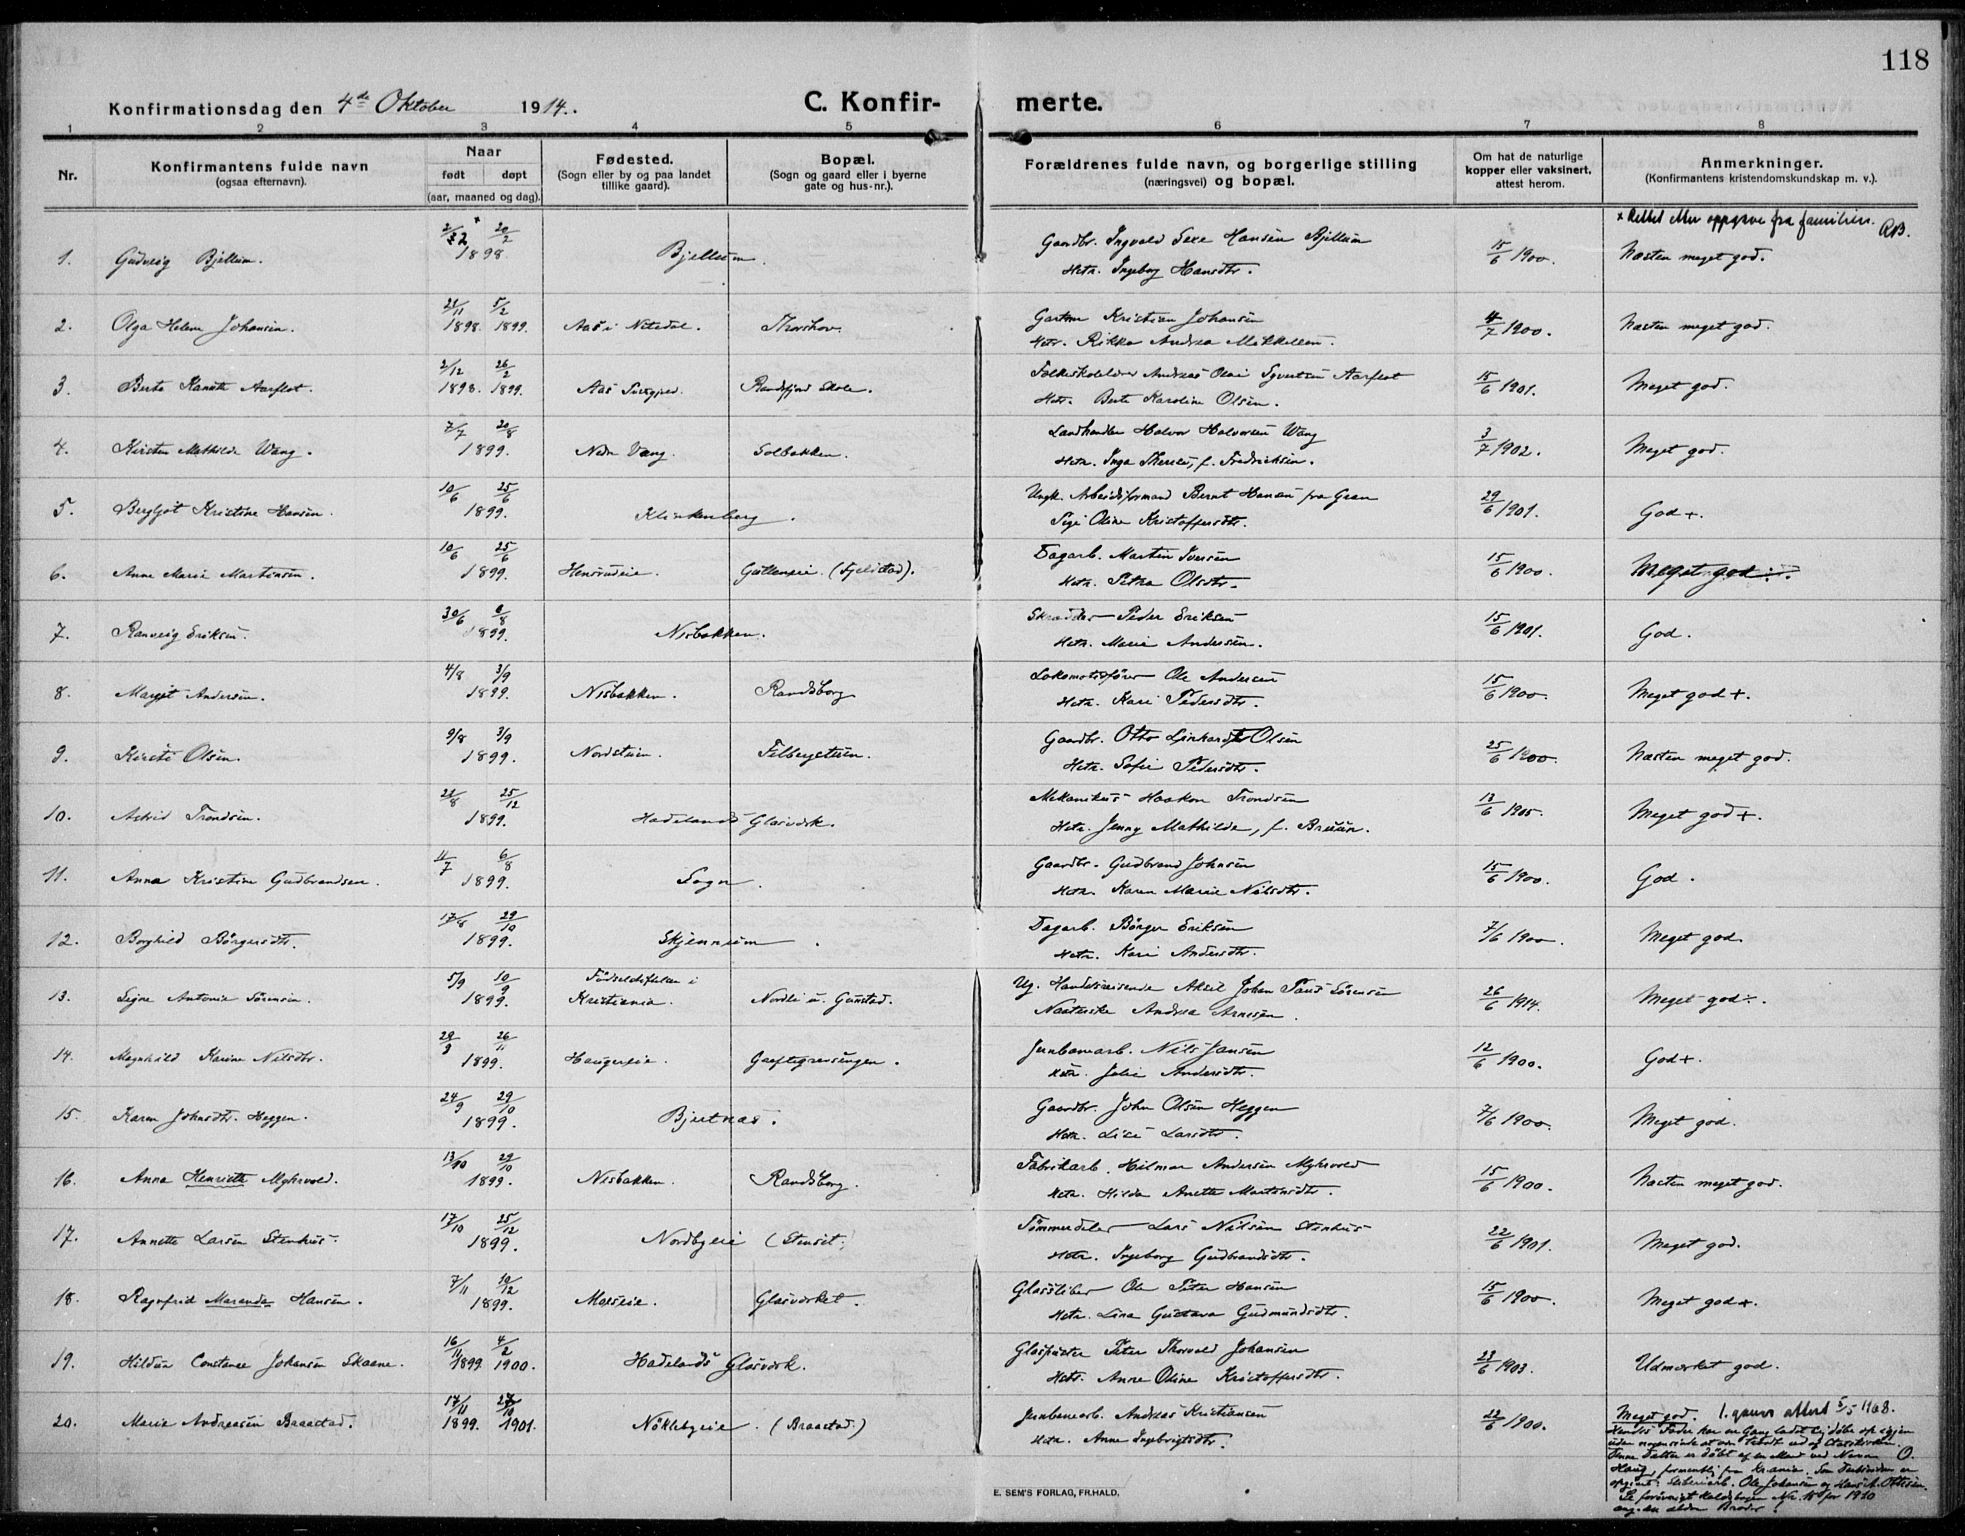 118
Konfirmationsdag den 4de Oktober 1914.
C. Konfirmerte.
1 2 3 4 5 6 7 8
Nr.
Konfirmantens fulde navn
(ogsaa efternavn).
Naar
født døpt
(aar, maaned og dag).
Fødested.
(Sogn eller by og paa landet
tillike gaard).
Bopæl.
(Sogn og gaard eller i byerne
gate og hus-nr.).
Forældrenes fulde navn, og borgerlige stilling
(næringsvei) og bopæl.
Om hat de naturlige
kopper eller vaksinert,
attest herom.
Anmerkninger.
(Konfirmantens kristendomskundskap m. v.).
× Rettet efter oppgave fra familien. RB.
1. Gudveig Bjellum. 20/2 1898. Bjellum. Gaardbr. Ingvald Hansen Bjellum 15/6 1900. Næsten meget god.
Hstr. Ingeborg Hansdtr.
2. Olga Helene Johansen. 21/11 1898. 5/2 1899. Aas i Nitedal. Thorshov. Gartner Kristian Johansen 4/7 1900. Næsten meget god.
Hstr. Rikka Andrea Mikkelsen.
3. Berte Aarflot. 2/12 1898. 26/2 1899. Aas Randsfjord Skole. Folkeskolelærer Andreas Olai Syvertsen Aarflot 15/6 1901. Meget god.
Hstr. Berte Karoline Olsen.
4. Kirsten Mathilde Wang. 7/7 20/8 1899. Ndr. Vang. Solbakken. Landhandler Halvor Halvorsen Wang 3/7 1902. Meget god.
Hstr. Inga Therese, f. Fredriksen.
5. Bergljot Kristine Hansen. 10/6 25/6 1899. Klinkenberg. Ungk. Arbeidsformand Bernt Hansen fra Gran 29/6 1901. God +.
Pige Oline Kristoffersdtr.
6. Anne Marie Martinsen. 10/6 25/6 1899. Hensrudeie. (Fjeldstad). Dagarb. Martin Iversen 15/6 1900. Meget god ÷.
Hstr. Petra Olsdtr.
7. Ranveig Eriksen. 30/6 6/8 1899. Nisbakken. Skrædder Peder Eriksen 15/6 1901. God.
Hstr. Marie Andersen.
8. Margit Andersen. 4/8 3/9 1899. Nisbakken. Randsborg Lokomotivfører Ole Andersen 15/6 1900. Meget god +.
Hstr. Kari Pedersdtr.
9. Kirsti Olsen. 9/8 3/9 1899. Nordstuen. Gaardbr. Otto Linhardt Olsen 25/6 1900. Næsten meget god.
Hstr. Sofie Pedersdtr.
10. Astrid Trondsen. 21/8 25/12 1899. Hadelands Glasværk. Mekanikus Haakon Trondsen 13/6 1905. Meget god +.
Hstr. Jenny Mathilde, f.
11. Anna Kristine Gudbrandsen. 11/7 6/8 1899. Sogn. Gaardbr. Gudbrand Johnsen 15/6 1900. God.
Hstr. Karen Marie Nilsdtr.
12. Borghild Börgersdtr. 17/8 29/10 1899. Skjennum. Dagarb. Börger Eriksen 7/6 1900. Meget god.
Hstr. Kari Andersdtr.
13. Signe Antonie Sörensen. 5/9 10/9 1899. Födselsstiftelsen i
Kristiania. Nordli u. Gunstad. Ug. Handelsreisende Aksel Johan Sörensen 26/6 1914. Meget god ÷.
Andrea Arnesen.
14. Magnhild Karine Nilsdtr. 28/9 26/11 1899. Haugereie. Jernbanearb. Nils Jansen 12/6 1900. God +.
Hstr. Julie Andersdtr.
15. Karen Johnsdtr. Heggen. 24/9 29/10 1899. Bjertnæs. Gaardbr. John Olsen Heggen 7/6 1900. Meget god.
Hstr. Lise Larsdtr.
16. Anna Henriette Myhrvold. 13/10 29/10 1899. Nisbakken. Randsborg. Fabrikarb. Hilmar Andersen Myhrvold 15/6 1900. Næsten meget god.
Hstr. Hilda Anette Martinsdtr.
17. Annette Larsen Stenhus. 17/10 25/12 1899. Nordbyeie Tömmerdeler Lars Nilsen Stenhus 22/6 1901. Meget god.
Hstr. Ingeborg Gudbrandsdtr.
18. Ragnfrid Marenda Hansen. 7/11 10/12 1899. Moseie. Glasværket. Glassliber Ole Peter Hansen 15/6 1900. Meget god +.
Hstr. Lina Gustava Gudmundsdtr.
19. Hildur Constance Johansen Skaane. 16/11 1899. 4/2 1900. Hadelands Glasværk. Glaspuster Peter Thorvald Johansen 23/6 1903. Udmærket god.
Hstr. Anne Oline Kristoffersdtr.
20. Marie Andreasen Braastad. 17/11 1899. 27/10 1901. Nöklebyeie. (Braastad) Jernbanearb. Andreas Kristiansen 22/6 1900. Meget god.
Hstr. Anne Ingebrigtsdtr.
Hendes Fader har en Gang ladet sig døbe op igjen
E. SEM'S FORLAG, FR.HALD.